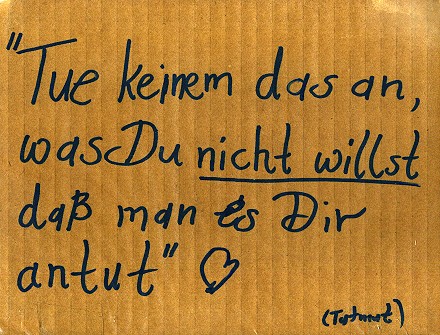 "Tue keinem das an,
was Du nicht willst
daß man es Dir
antut" ♡